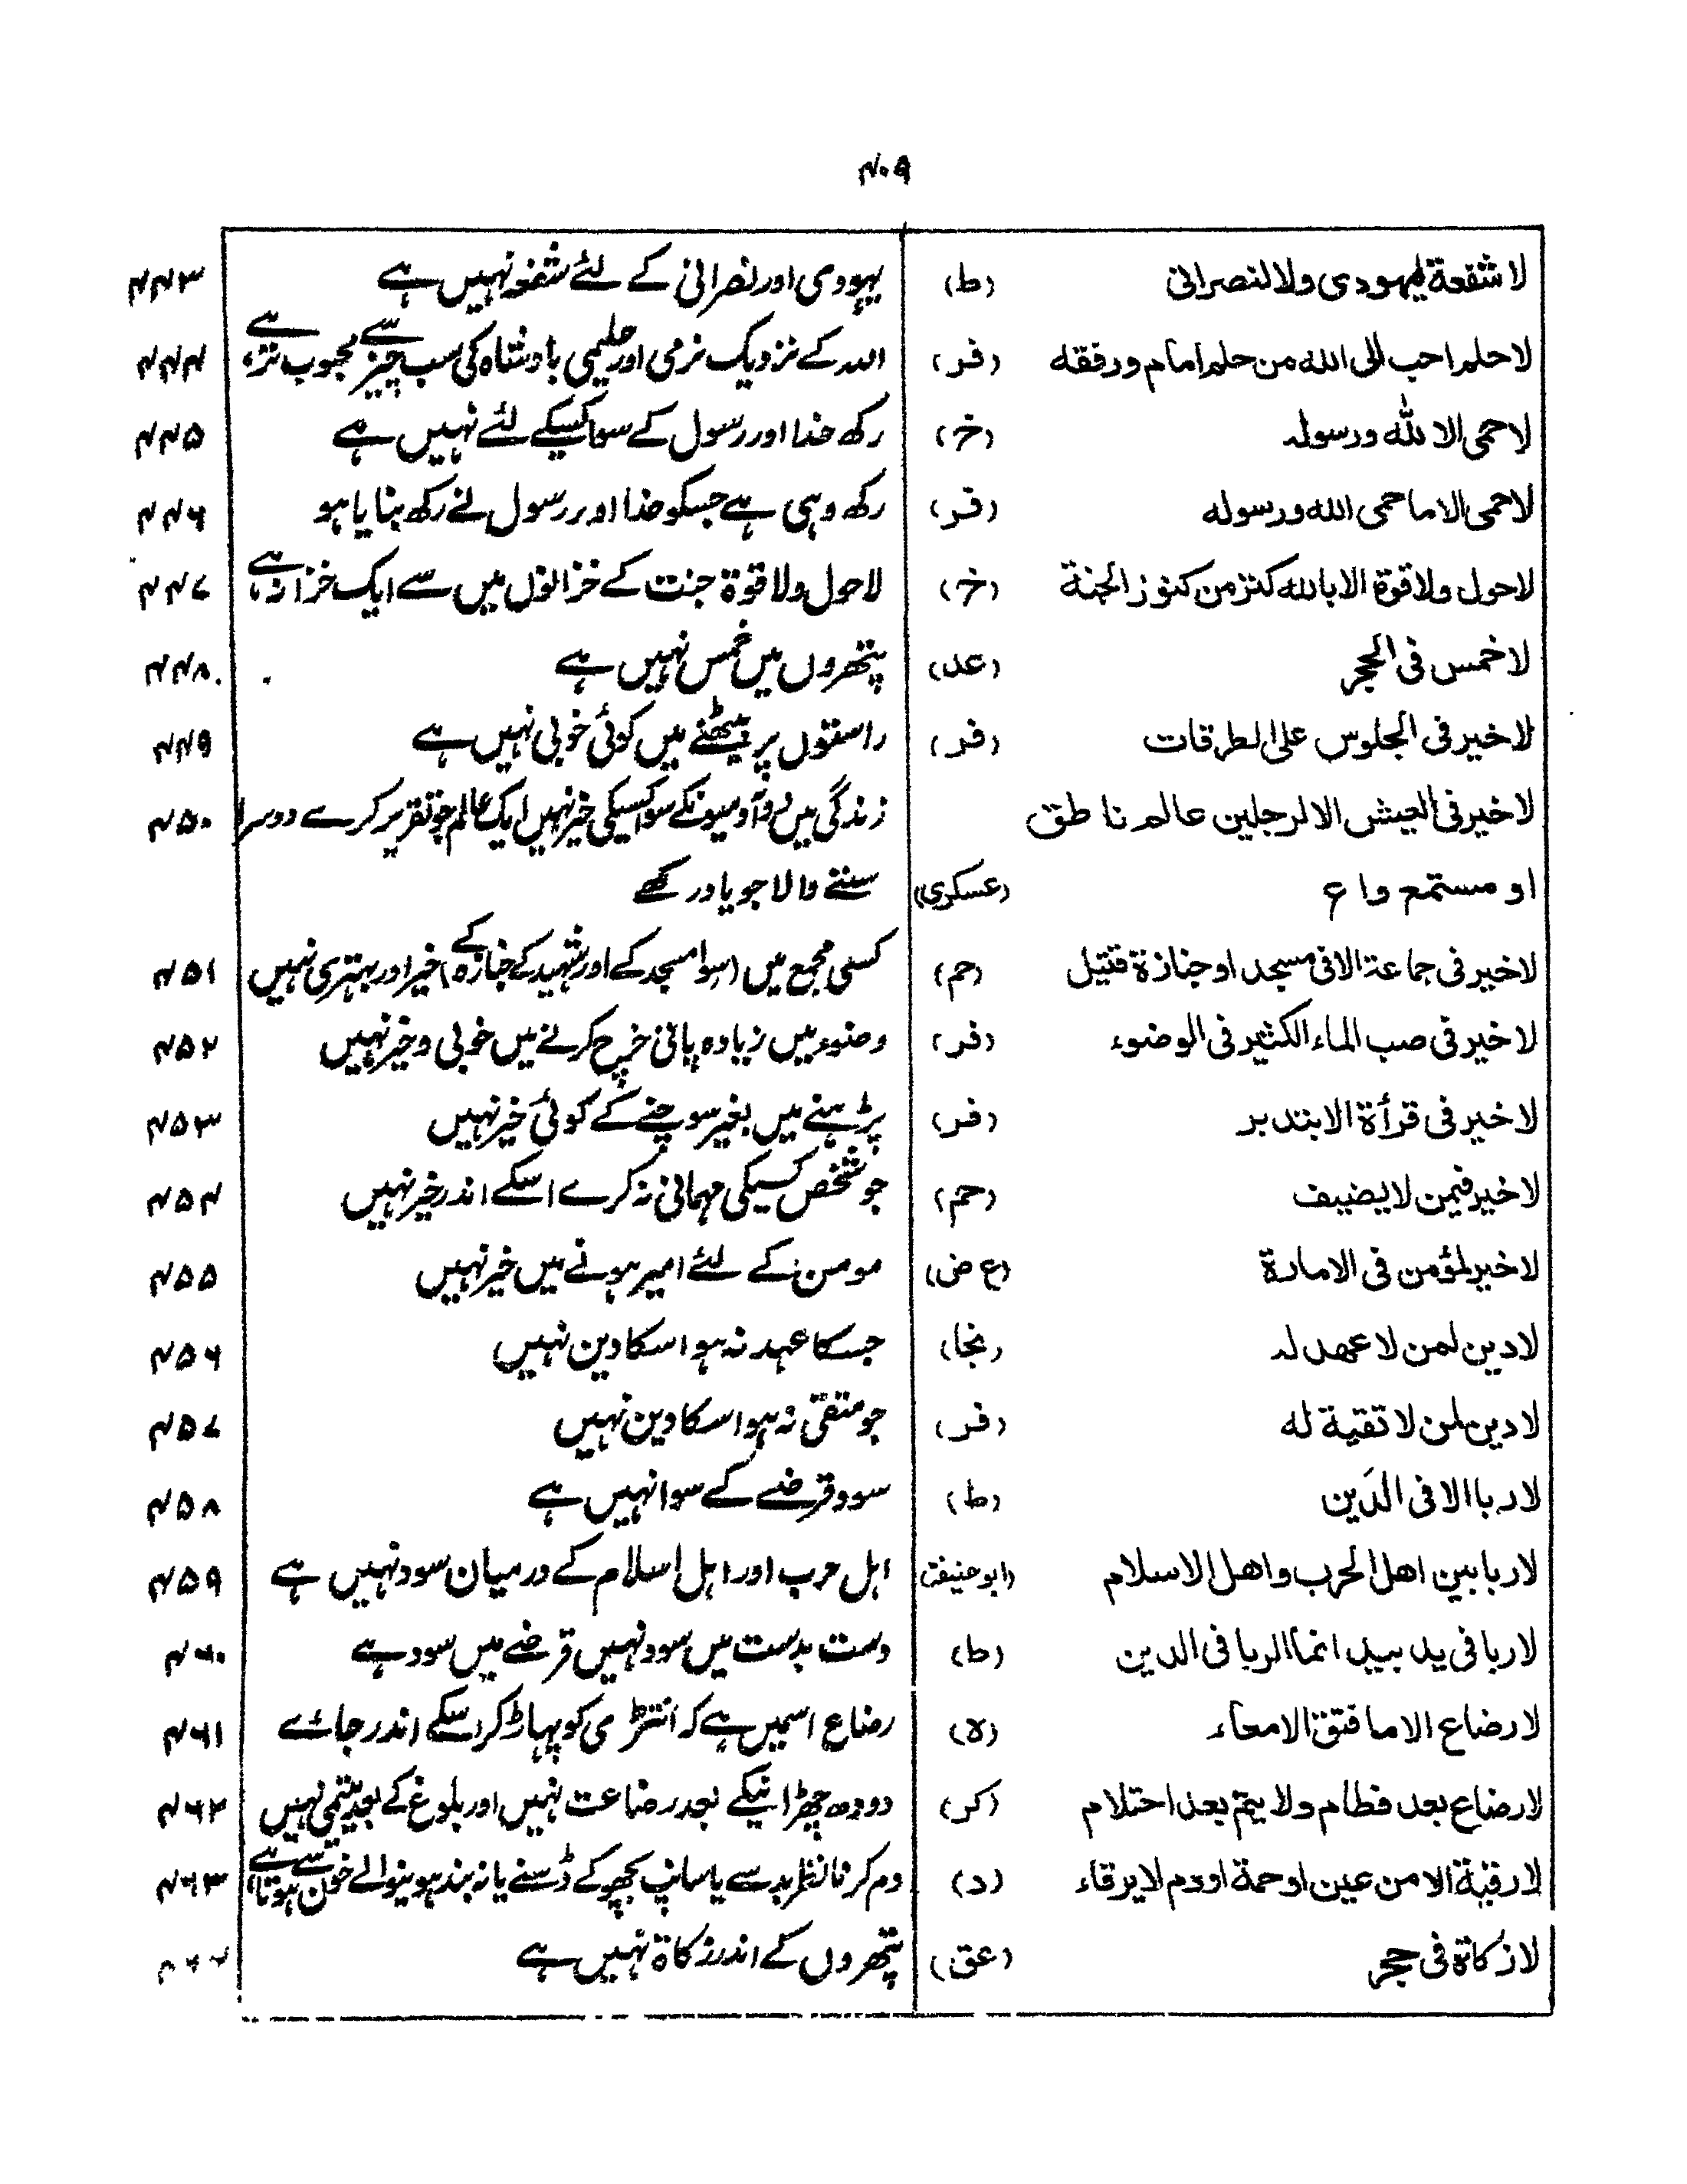 ۴۰۹
لا شفعة ليهودی ولا لنصرانی (ط) یہودی اور نصرانی کے لئے شفعہ نہیں ہے ۴۴۳
لا حلم احب الی الله من حلم امام ورفقه (فر) اللہ کے نزدیک نرمی اور حلیمی بادشاہ کی سب چیز سے محبوب تر ہے، ۴۴۴
لا حمی الا لله ورسوله (خ) رکھ خدا اور رسول کے سوا کسیکے لئے نہیں ہے ۴۴۵
لا حمی الا ما حمی الله ورسوله (قر) رکھ وہی ہے جسکو خدا اور رسول نے رکھ بنایا ہو ۴۴۶
لا حول ولا قوة الا بالله کنز من کنوز الجنة (خ) لاحول ولا قوة جنت کے خزانوں میں سے ایک خزانہ ہے، ۴۴۷
لا خمس فی الحجر (عد) پتھروں میں خمس نہیں ہے ۴۴۸
لا خیر فی الجلوس علی الطرقات (فر) راستوں پر بیٹھنے میں کوئی خوبی نہیں ہے ۴۴۹
لا خیر فی العیش الا لرجلین عالم ناطق زندگی میں دو آدمیونکے سوا کسیکی خیر نہیں ایک عالم جو تقریر کرے دوسرا ۴۵۰
او مستمع واع (عسکری) سننے والا جو یاد رکھے
لا خیر فی جماعة الا فی مسجد او جنازة قتیل (حم) کسی مجمع میں (سوا مسجد کے اور شہید کے جنازہ کے) خیر اور بہتری نہیں ۴۵۱
لا خیر فی صب الماء الکثیر فی الوضوء (فر) وضوء میں زیادہ پانی خرچ کرنے میں خوبی و خیر نہیں ۴۵۲
لا خیر فی قرأة الا بتدبر (فر) پڑہنے میں بغیر سوچنے کے کوئی خیر نہیں ۴۵۳
لا خیر فیمن لا یضیف (حم) جو شخص کسیکی مہمانی نہ کرے اسکے اندر خیر نہیں ۴۵۴
لا خیر لمؤمن فی الامارة (ع ض) مومن کے لئے امیر ہونے میں خیر نہیں ۴۵۵
لا دین لمن لا عهد له (نجا) جسکا عہد نہ ہو اسکا دین نہیں ۴۵۶
لا دین لمن لا تقیة له (فر) جو متقی نہ ہو اسکا دین نہیں ۴۵۷
لا ربا الا فی الدَین (ط) سود قرضے کے سوا نہیں ہے ۴۵۸
لا ربا بین اهل الحرب واهل الاسلام (ابو حنیفة) اہل حرب اور اہل اسلام کے درمیان سود نہیں ہے ۴۵۹
لا ربا فی ید بید انما الربا فی الدین (ط) دست بدست میں سود نہیں قرضے میں سود ہے ۴۶۰
لا رضاع الا ما فتق الامعاء (ہ) رضاع اسمیں ہے کہ انتڑی کو پہاڑ کر اسکے اندر جائے ۴۶۱
لا رضاع بعد فطام ولا یتم بعد احتلام (کر) دودھ چھڑانیکے بعد رضاعت نہیں اور بلوغ کے بعد یتمی نہیں ۴۶۲
لا رقیة الا من عین او حمة او دم لا یرقاء (د) دم کرنا نظر بد سے یا سانپ بچھو کے ڈسنے یا نہ بند ہونیوالے خون سے ہوتا ہے، ۴۶۳
لا زکاة فی حجر (عق) پتھروں کے اندر زکاة نہیں ہے